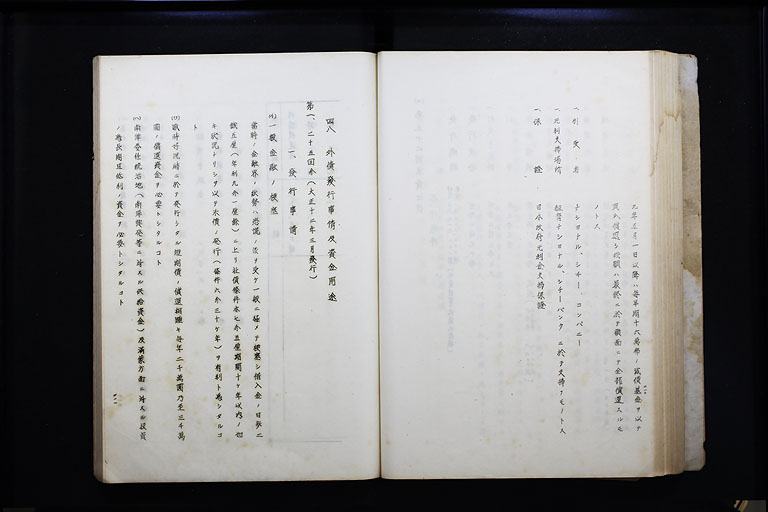 元年五月一日以降ハ毎半期十八萬弗ノ減債基金ヲ以テ
買入償還シ残額ハ最終ニ於テ額面ニテ全部償還スルモ
ノトス
一、引受者
ナショナル、シチー、コンパニー
一、元利支拂場所
紐育ナショナル、シチーバンクニ於テ支拂フモノトス
一、保證
日本政府元利金支拂保證
四八 外債發行事情及資金用途
第一、二十五回外(大正十二年三月發行)
一、發行事情
(イ)一般金融ノ梗塞
當時ノ金融界ノ狀勢ハ恐慌ノ後ヲ受ケ一般ニ極メテ梗塞シ借入金ノ日歩二
錢五厘(年利九分一厘餘)ニ上リ社債條件亦七分五厘期間十ケ年以内ノ如
キ狀況ナリシヲ以テ外債ノ發行(條件六分三十ケ年)ヲ有利ト爲シタルコ
ト
(ロ)戰時好況時ニ於テ發行シタル短期債ノ償還期臻キ每年二千萬圓乃至三千萬
圓ノ償還資金ヲ必要トシタルコト
(ハ)南洋委任統治地(南洋興發等ニ対スル供給資金)及滿蒙方面ニ対スル投資
ノ爲長期且低利ノ資金ヲ必要トシタルコト